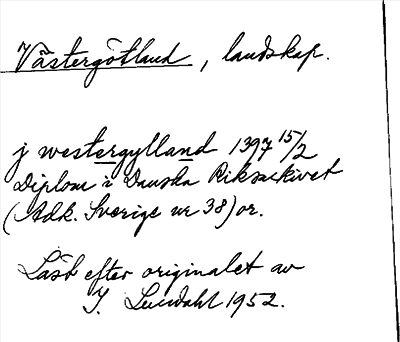 Västergötland, landskap.
j westergylland 1397 15/2
Diplom i Danska Riksarkivet
(Adk. Sverige nr 38) or.
Läst efter originalet av
I. Lundahl 1952.